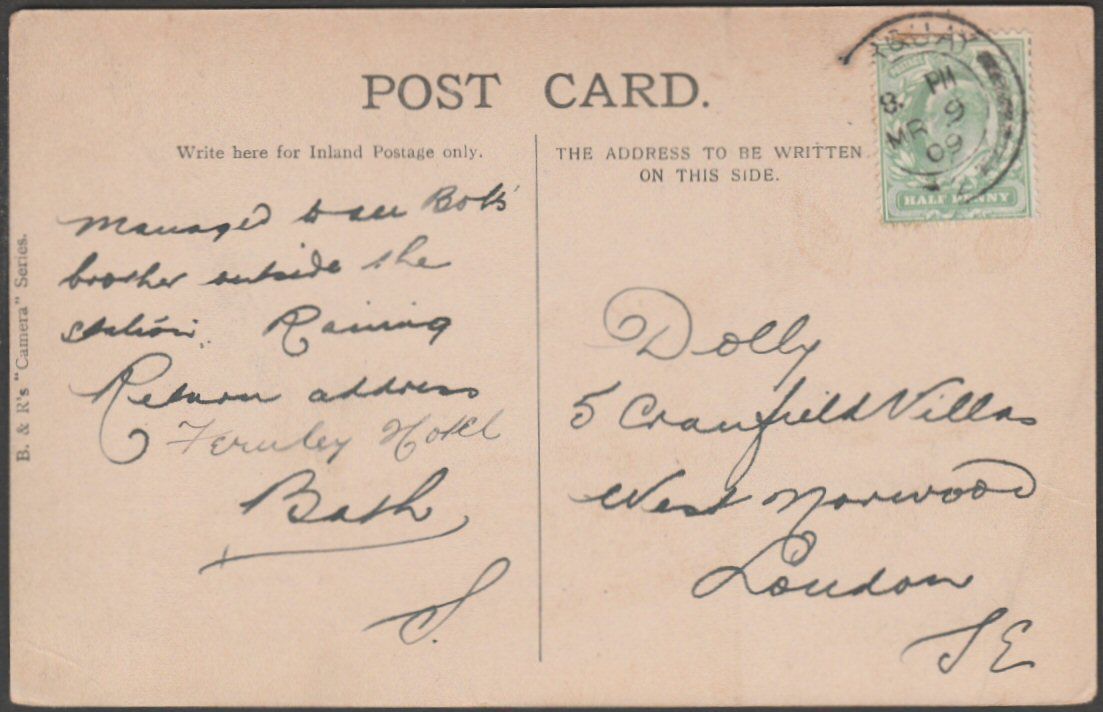 POST CARD.
Write here for Inland Postage only.
THE ADDRESS TO BE WRITTEN
ON THIS SIDE.
B. & R's "Camera" Series.
Managed to see Bob's
brother outside the
station. Raining
Return address
Fernley Hotel
Bath
S.
Dolly
5 Cranfield Villas
West Norwood
London
SE
RQUAY
8. PM
MR 9
09
POSTAGE
HALF PENNY